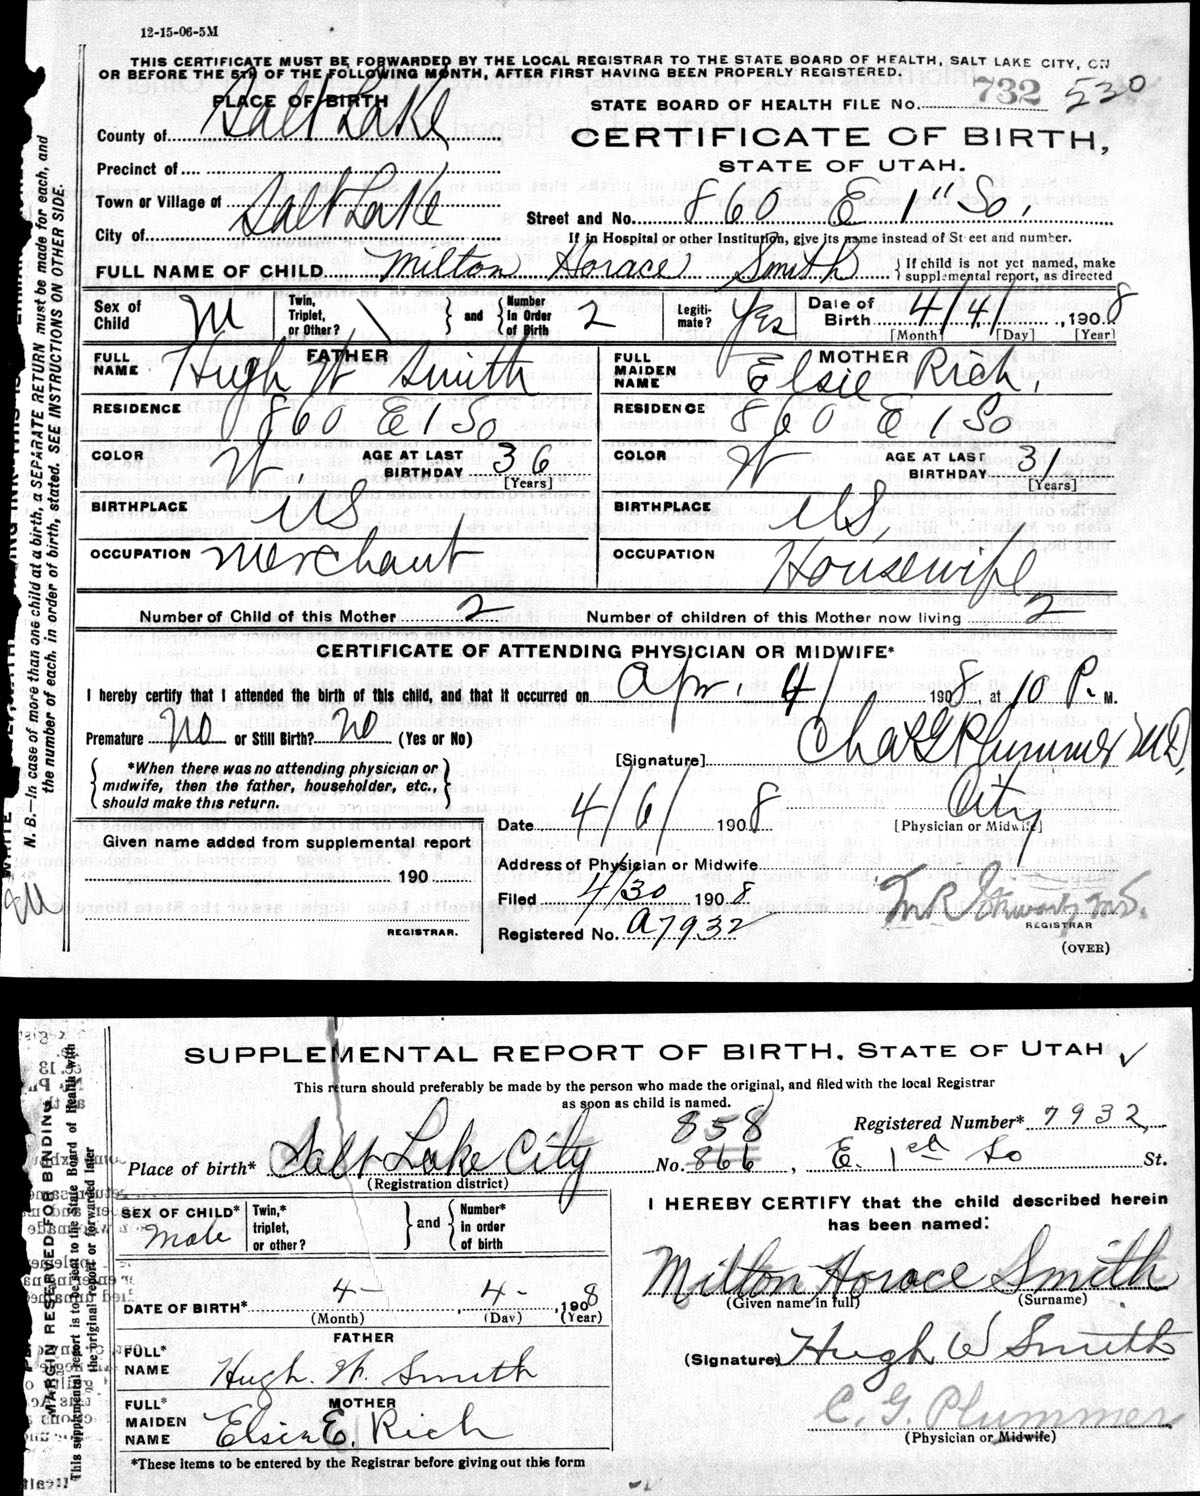 12-15-06-5M
THIS CERTIFICATE MUST BE FORWARDED BY THE LOCAL REGISTRAR TO THE STATE BOARD OF HEALTH, SALT LAKE CITY, ON
OR BEFORE THE 5TH OF THE FOLLOWING MONTH, AFTER FIRST HAVING BEEN PROPERLY REGISTERED.
PLACE OF BIRTH
STATE BOARD OF HEALTH FILE No. 732 530
County of Salt Lake
CERTIFICATE OF BIRTH,
STATE OF UTAH.
Precinct of
Town or Village of
City of Salt Lake
Street and No. 860 E 1" So.
If in Hospital or other Institution, give its name instead of Street and number.
FULL NAME OF CHILD Milton Horace Smith { If child is not yet named, make supplemental report, as directed
Sex of Child M Twin, Triplet, or Other? \ } and { Number in Order of Birth 2 Legitimate? Yes Date of Birth 4/4/, 1908
[Month] [Day] [Year]
FATHER
FULL NAME Hugh W Smith
RESIDENCE 860 E 1 So
COLOR W AGE AT LAST BIRTHDAY 36 [Years]
BIRTHPLACE U.S.
OCCUPATION Merchant
MOTHER
FULL MAIDEN NAME Elsie Rich.
RESIDENCE 860 E 1 So
COLOR W AGE AT LAST BIRTHDAY 31 [Years]
BIRTHPLACE U.S.
OCCUPATION Housewife
Number of Child of this Mother 2 Number of children of this Mother now living 2
CERTIFICATE OF ATTENDING PHYSICIAN OR MIDWIFE*
I hereby certify that I attended the birth of this child, and that it occurred on Apr. 4/ 1908, at 10 P. M.
Premature No or Still Birth? No (Yes or No)
[Signature] Chas G Plummer M.D.
{ *When there was no attending physician or
midwife, then the father, householder, etc.,
should make this return. }
City
Date 4/6/ 1908 [Physician or Midwife]
Given name added from supplemental report
190
REGISTRAR.
Address of Physician or Midwife
Filed 4/30 1908
Registered No. A7932
REGISTRAR
(OVER)
N. B.—In case of more than one child at a birth, a SEPARATE RETURN must be made for each, and
the number of each, in order of birth, stated. SEE INSTRUCTIONS ON OTHER SIDE.
SUPPLEMENTAL REPORT OF BIRTH, STATE OF UTAH ✓
This return should preferably be made by the person who made the original, and filed with the local Registrar
as soon as child is named.
Registered Number* 7932
Place of birth* Salt Lake City No. 858 866, E. 1st So St.
(Registration district)
SEX OF CHILD* Male Twin,* triplet, or other? } and { Number* in order of birth
DATE OF BIRTH* 4- , 4- , 1908
(Month) (Day) (Year)
FATHER
FULL* NAME Hugh. W. Smith
MOTHER
FULL* MAIDEN NAME Elsie E. Rich
*These items to be entered by the Registrar before giving out this form
I HEREBY CERTIFY that the child described herein
has been named:
Milton Horace Smith
(Given name in full) (Surname)
(Signature) Hugh W Smith
C. G. Plummer
(Physician or Midwife)
MARGIN RESERVED FOR BINDING
This supplemental report is to be sent to the State Board of Health with
the original report or forwarded later